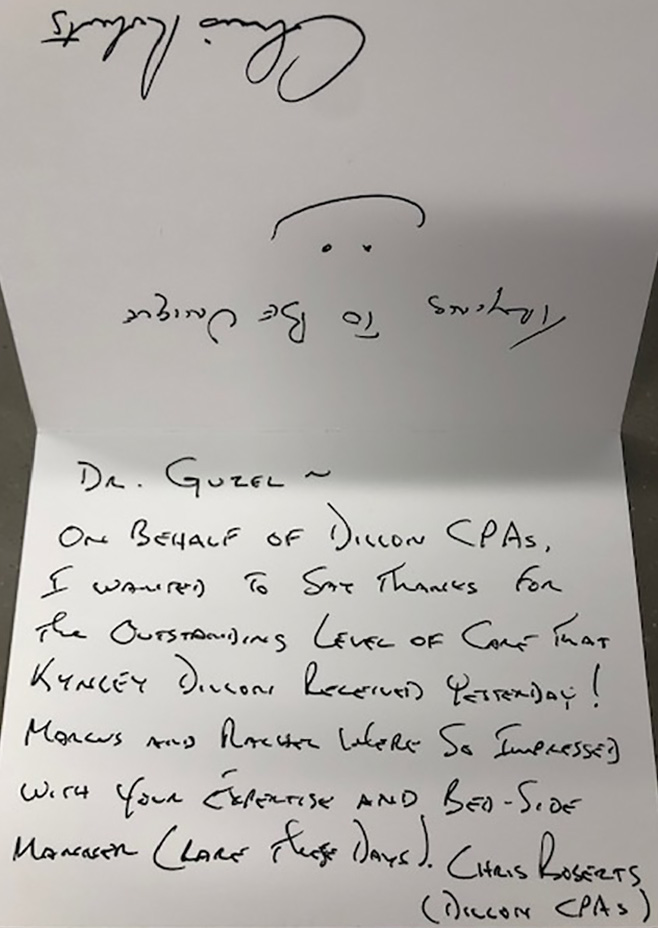 Chris Roberts
Trying to Be Unique
Dr. Guzel ~
On Behalf of Dillon CPAs,
I wanted to Say Thanks for
the Outstanding Level of Care That
Kynley Dillon Received Yesterday!
Marcus and Rachel Were So Impressed
With Your Expertise and Bed-Side
Manner (Rare These Days). Chris Roberts
(Dillon CPAs)